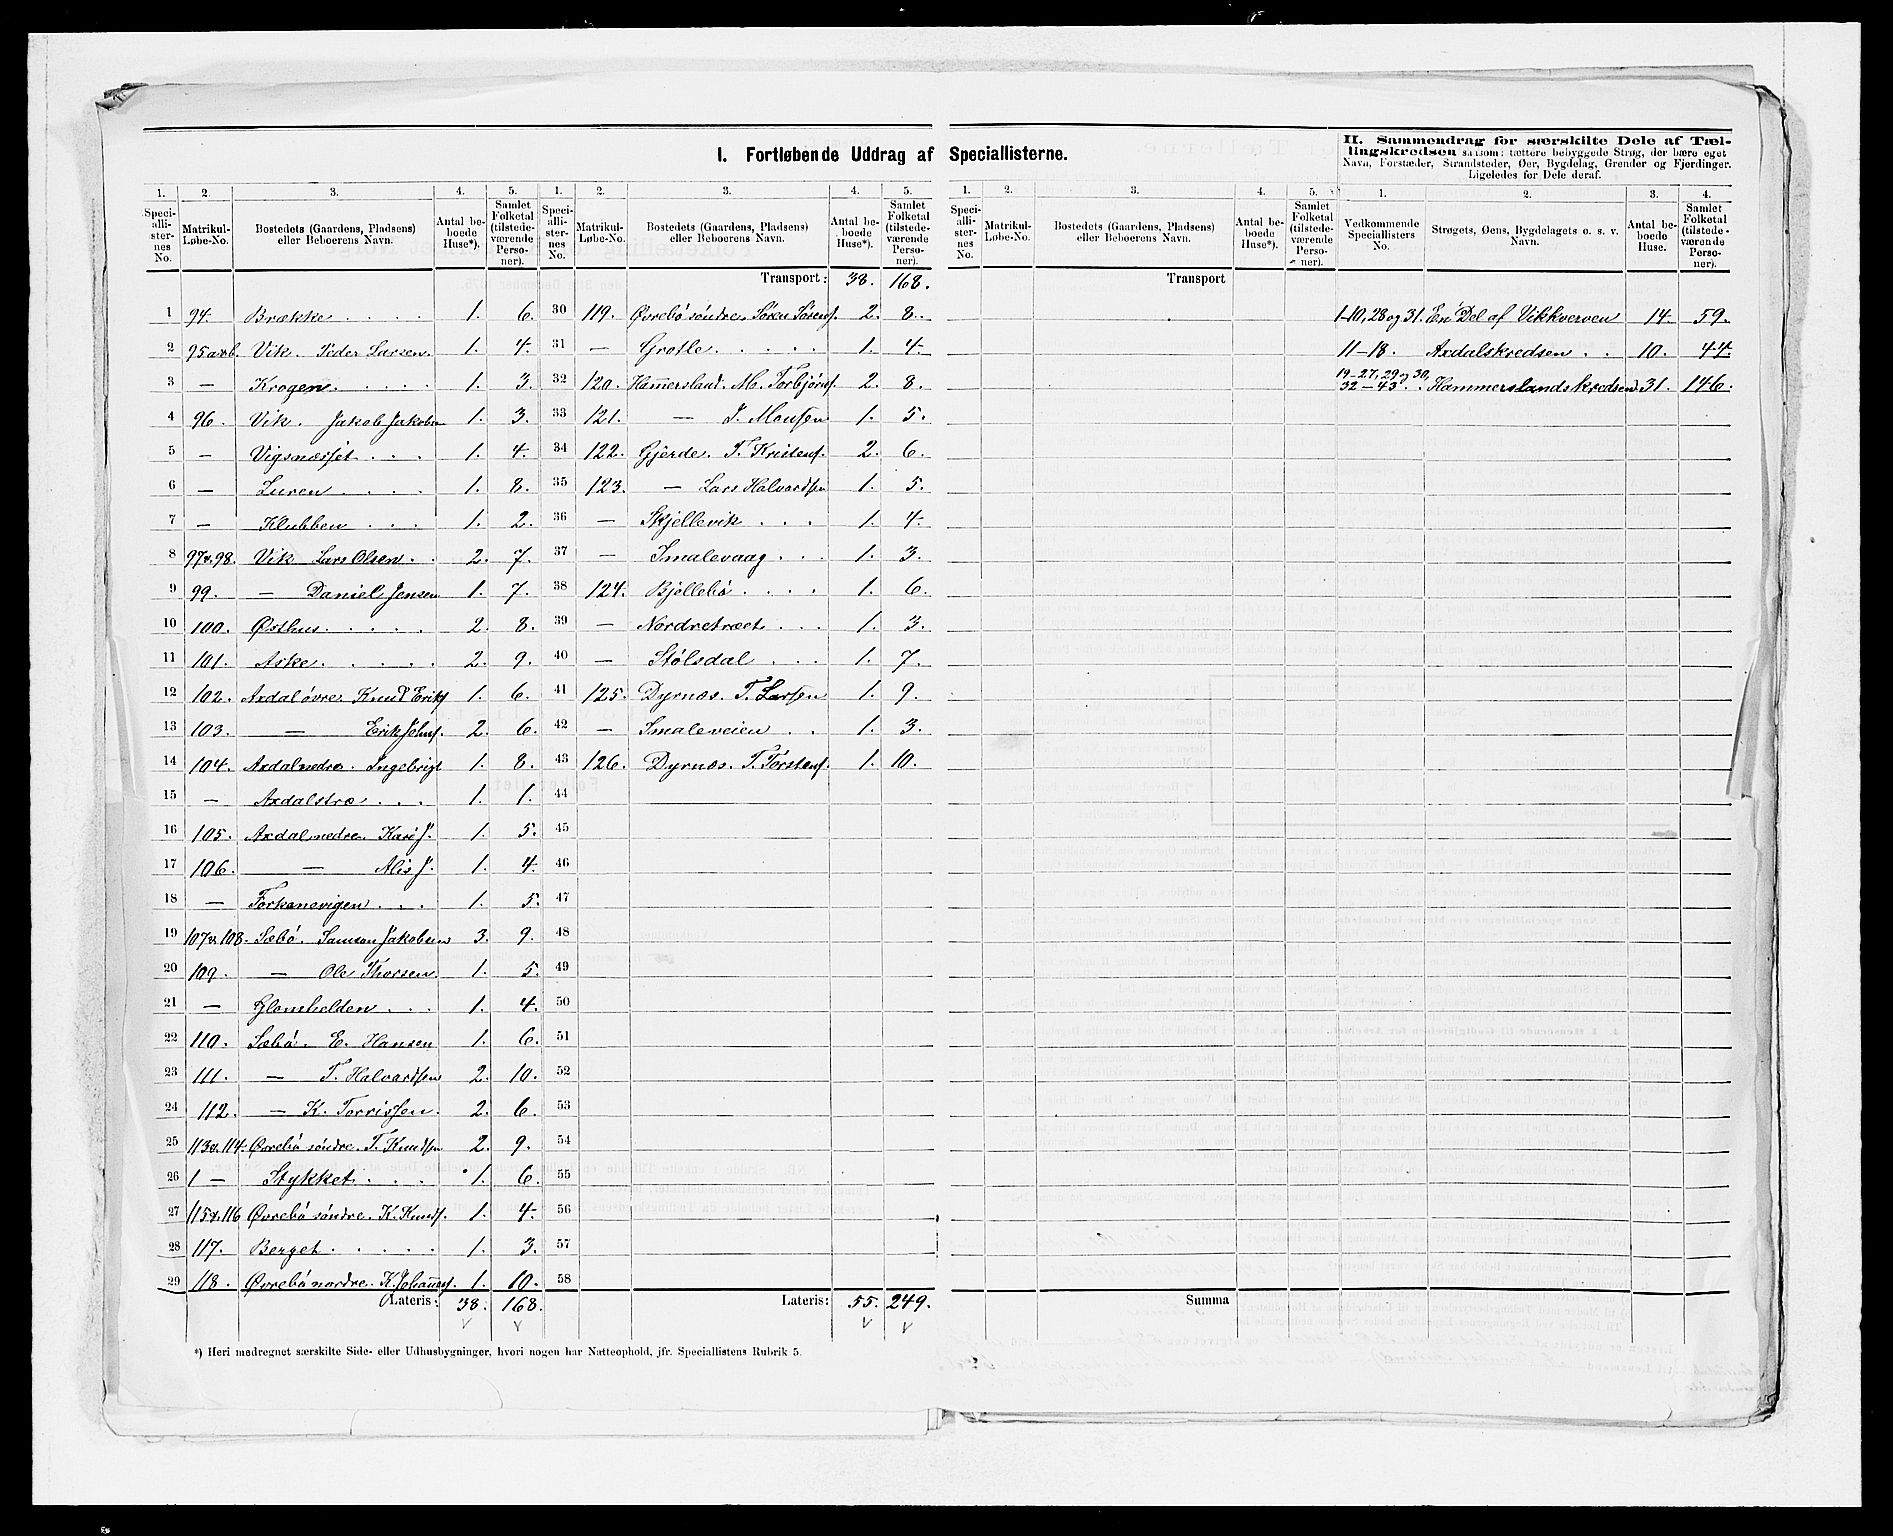 I. Fortløbende Uddrag af Speciallisterne.
II. Sammendrag for særskilte Dele af Tællingskredsen saasom: tættere bebyggede Strøg, der bære eget
Navn, Forstæder, Strandsteder, Øer, Bygdelag, Grender og Fjerdinger.
Ligeledes for Dele deraf.
1. 2. 3. 4. 5. 1. 2. 3. 4. 5. 1. 2. 3. 4. 5. 1. 2. 3. 4.
Speciallisternes No. Matrikul-Løbe-No. Bostedets (Gaardens, Pladsens) eller Beboerens Navn. Antal beboede Huse*). Samlet Folketal (tilstedeværende Personer).
Speciallisternes No. Matrikul-Løbe-No. Bostedets (Gaardens, Pladsens) eller Beboerens Navn. Antal beboede Huse*). Samlet Folketal (tilstedeværende Personer).
Speciallisternes No. Matrikul-Løbe-No. Bostedets (Gaardens, Pladsens) eller Beboerens Navn. Antal beboede Huse*). Samlet Folketal (tilstedeværende Personer).
Vedkommende Speciallisters No. Strøgets, Øens, Bygdelagets o. s. v. Navn. Antal beboede Huse. Samlet Folketal (tilstedeværende Personer).
1 94. Brække . . . . 1. 6.
2 95a&b. Vik. Peder Larsen. 1. 4.
3 — Krogen. . . . . 1. 3.
4 96. Vik. Jakob Jakobsen 1. 3.
5 — Vigsnæsset . . . 1. 4.
6 — Luren . . . . 1. 8.
7 — Klubben . . . 1. 2.
8 97&98. Vik Lars Olsen. . 2. 7.
9 99. — Daniel Jensen 1. 7.
10 100. Østhus. . . . . 2. 8.
11 101. Aske. . . . . 2. 9.
12 102. Axdal øvre. Knud Eriks. 1. 6.
13 103. — Erik Johns. 2. 6.
14 104. Axdal nedre. Ingebrigt 1. 8.
15 — Axdalstræ . . . 1. 1.
16 105. Axdal nedre. Kari J. 1. 5.
17 106. — Alis J. 1. 4.
18 — Torkanevigen . . . 1. 5.
19 107&108. Sæbö. Samson Jakobsen 3. 9.
20 109. — Ole Thorsen. 1. 5.
21 — Glomhelden . . . 1. 4.
22 110. Sæbö. E. Hansen 1. 6.
23 111. — T. Halvardsen 2. 10.
24 112. — K. Torrissen. 2. 6.
25 113&114. Øvrebö söndre. T. Knudsen 2. 9.
26 1 — Stykket . . . 1. 6.
27 115&116 Øvrebö söndre. K. Knuds. 1. 4.
28 117. Berget . . . . . 1. 3.
29 118. Øvrebö nordre. K. Johannes. 1. 10.
Lateris: 38. 168.
Transport: 38. 168.
30 119. Øvrebö söndre. Sören Sörens. 2. 8.
31 — Grotle . . . . . 1. 4.
32 120. Hammersland. M. Torbjörns. 2. 8.
33 121. — J. Monsen 1. 5.
34 122. Gjerde. T. Kristens. 2. 6.
35 123. — Lars Halvardsen 1. 5.
36 — Skjellevik . . . 1. 4.
37 — Smalevaag . . . 1. 3.
38 124. Bjellebö . . . . 1. 6.
39 — Nordretræet . . . 1. 3.
40 — Stölsdal . . . 1. 7.
41 125. Dyrnæs. T. Larsen 1. 9.
42 — Smaleveien . . 1. 3.
43 126. Dyrnæs. T. Torstens. 1. 10.
44
45
46
47
48
49
50
51
52
53
54
55
56
57
58
Lateris: 55. 249.
Transport
Summa
1–10, 28 og 31. En Del af Vikkverven 14. 59.
11–18. Axdalskredsen . . 10. 44.
19–27, 29 og 30, 32–43. . Hammerslandskredsen. 31. 146.
*) Heri medregnet særskilte Side- eller Udhusbygninger, hvori nogen har Natteophold, jfr. Speciallistens Rubrik 5.